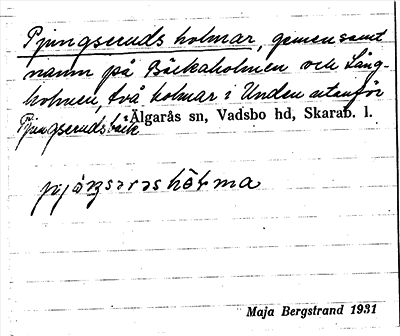 Pjungseruds holmar, gemensamt
namn på Bäckaholmen och Lång-
holmen, två holmar i Unden utanför
Pjungserudsbäck
Älgarås sn, Vadsbo hd, Skarab. l.
Maja Bergstrand 1931